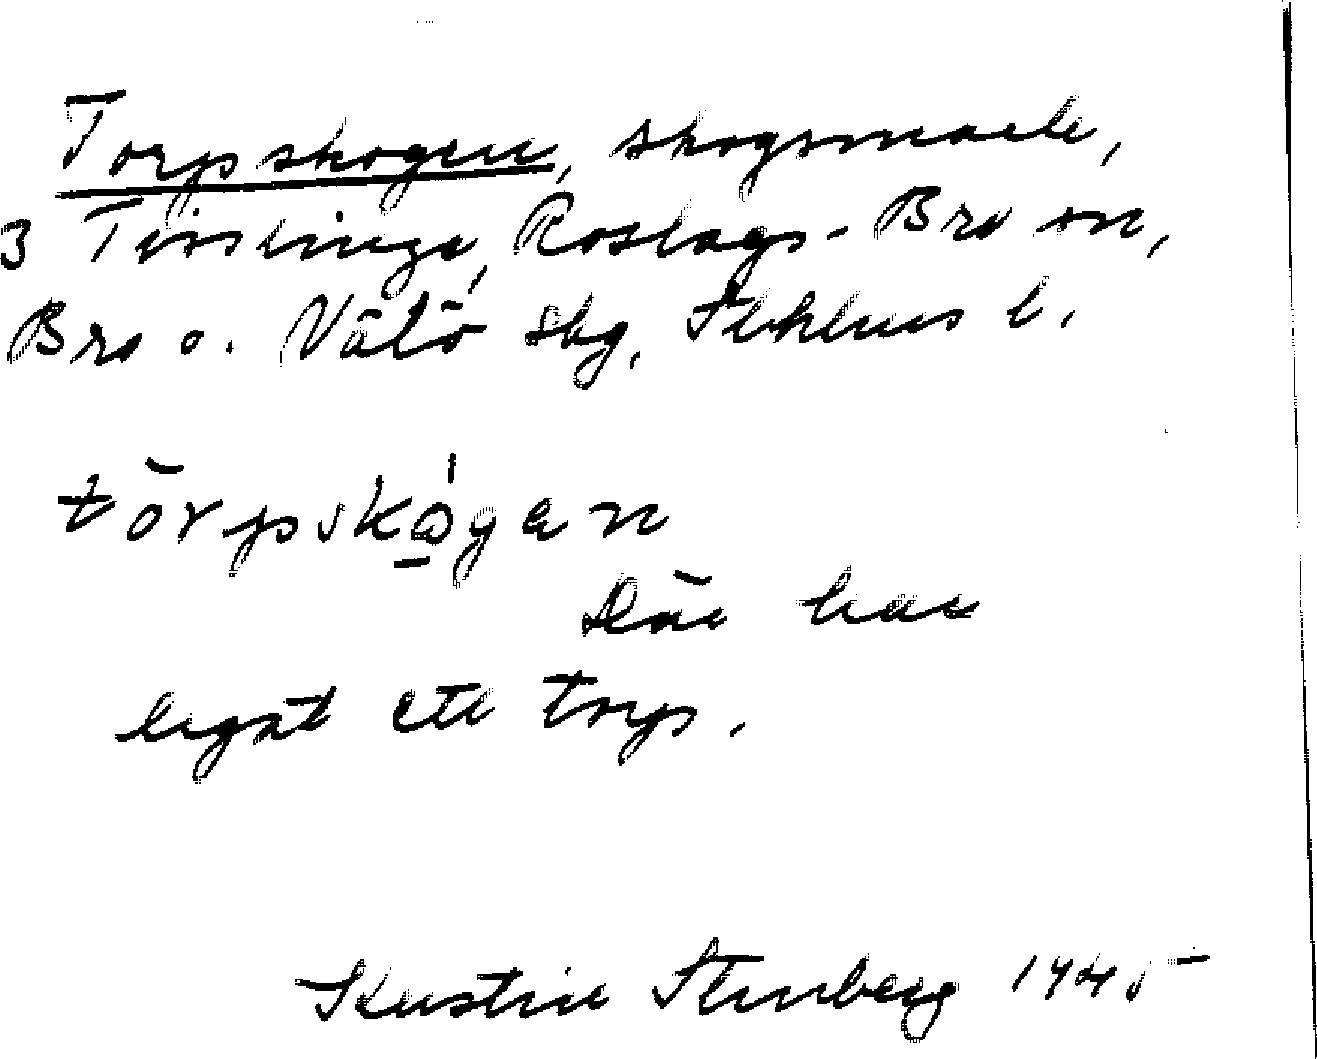 Torpskogen, skogsmark,
3 Tisslinge, Roslags-Bro sn,
Bro o. Vätö skg, Sthlms l.
törpskógen
Där har
legat ett torp.
Kerstin Stenberg 1945